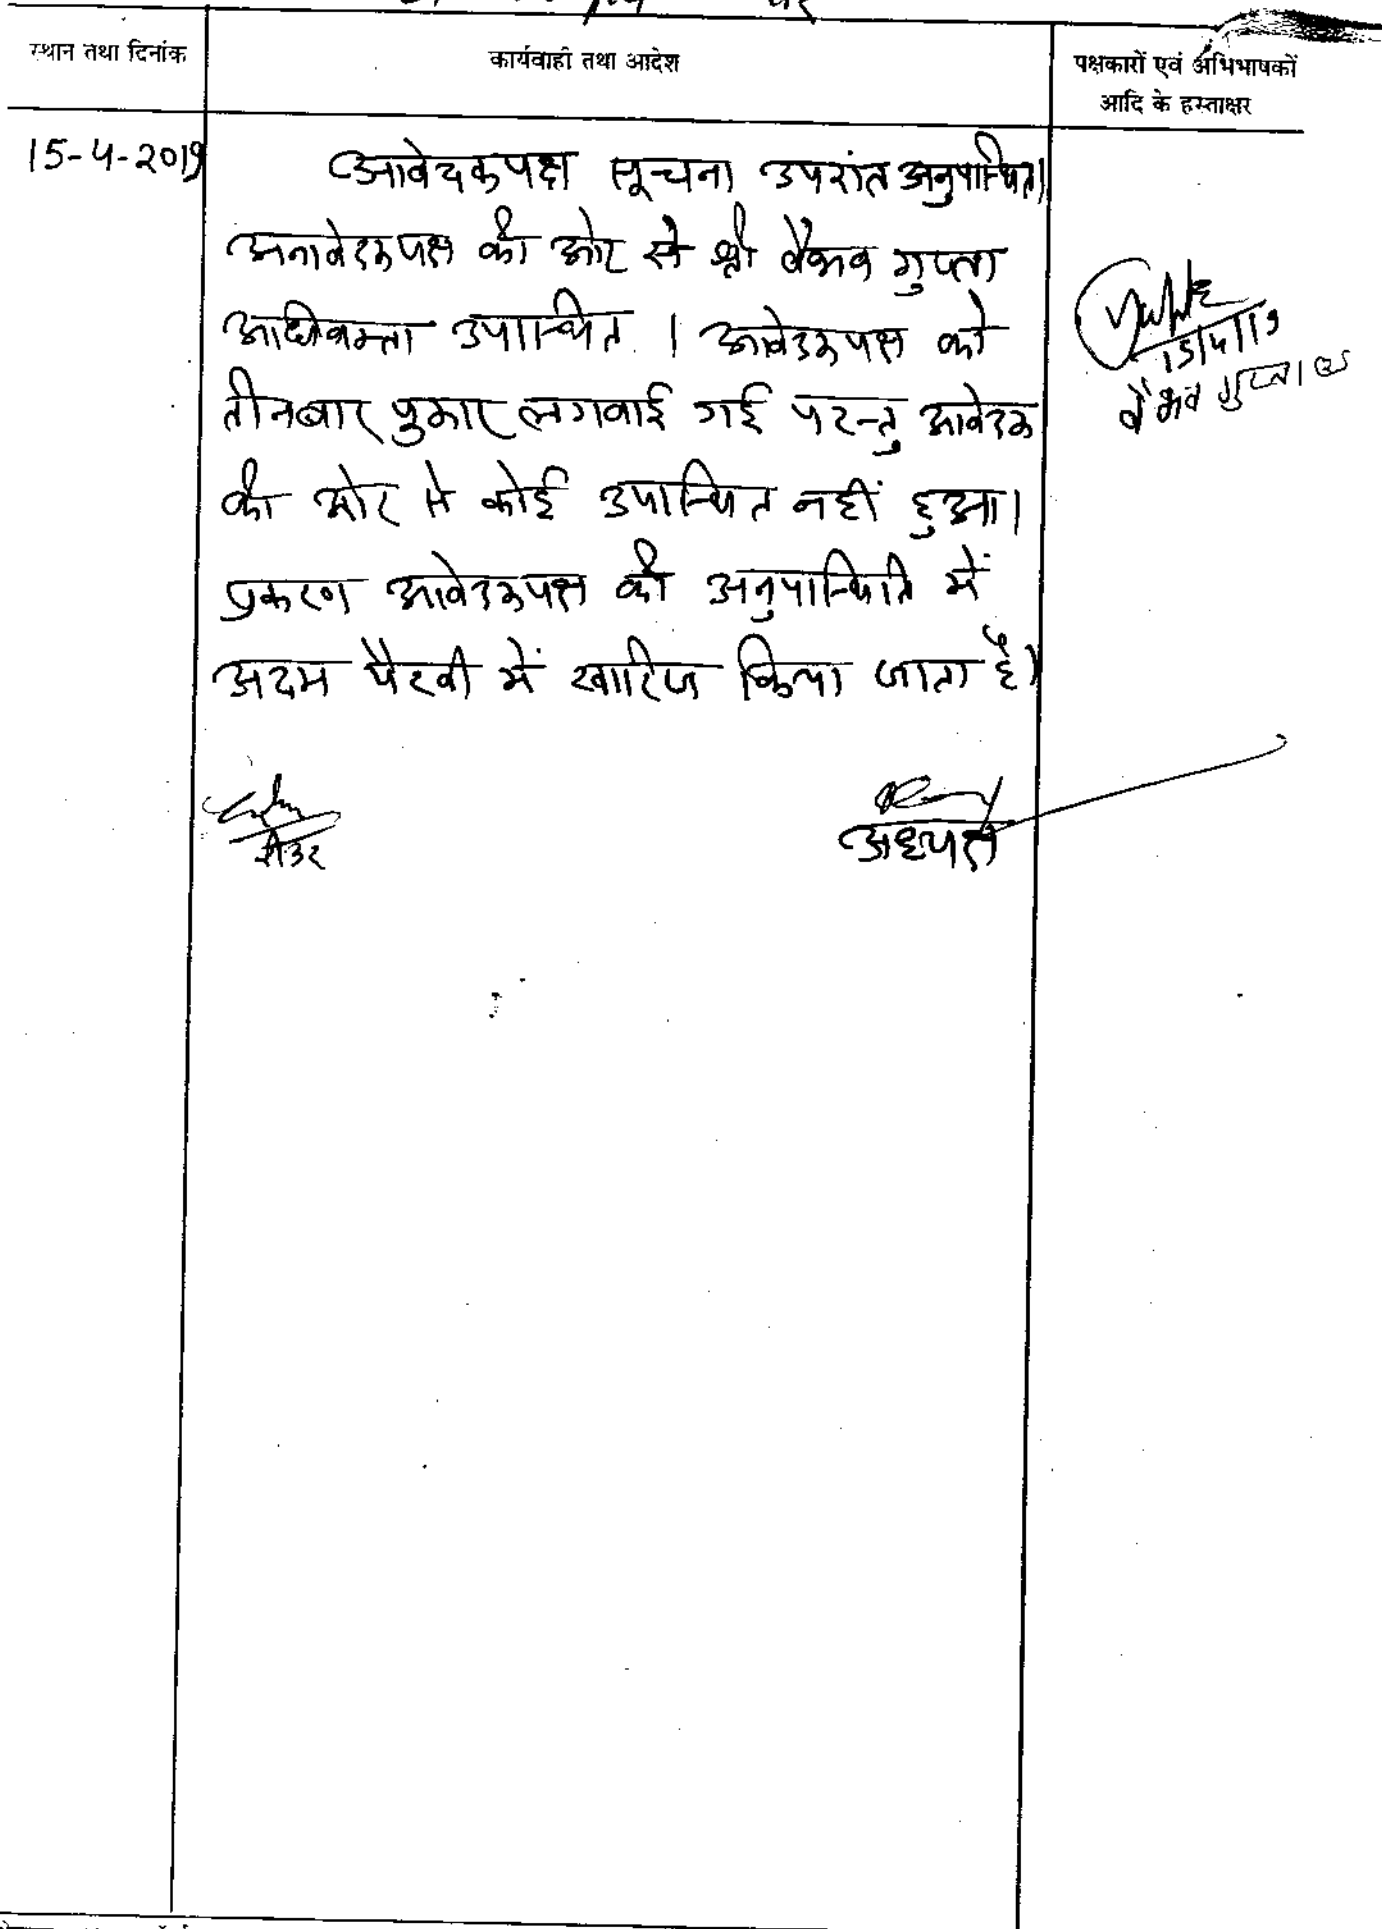 स्थान तथा दिनांक
कार्यवाही तथा आदेश
पक्षकारों एवं अभिभाषकों
आदि के हस्ताक्षर
15-4-2019
आवेदकपक्ष सूचना उपरांत अनुपस्थित।
अनावेदकपक्ष की ओर से श्री वैभव गुप्ता
अधिवक्ता उपस्थित । आवेदकपक्ष को
तीनबार पुकार लगवाई गई परन्तु आवेदक
की ओर से कोई उपस्थित नहीं हुआ।
प्रकरण आवेदकपक्ष की अनुपस्थिति में
अदम पैरवी में खारिज किया जाता है।
15/4/19
वैभव गुप्ता
अध्यक्ष